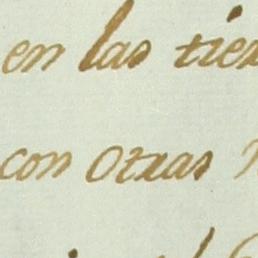 en las tier
con otras